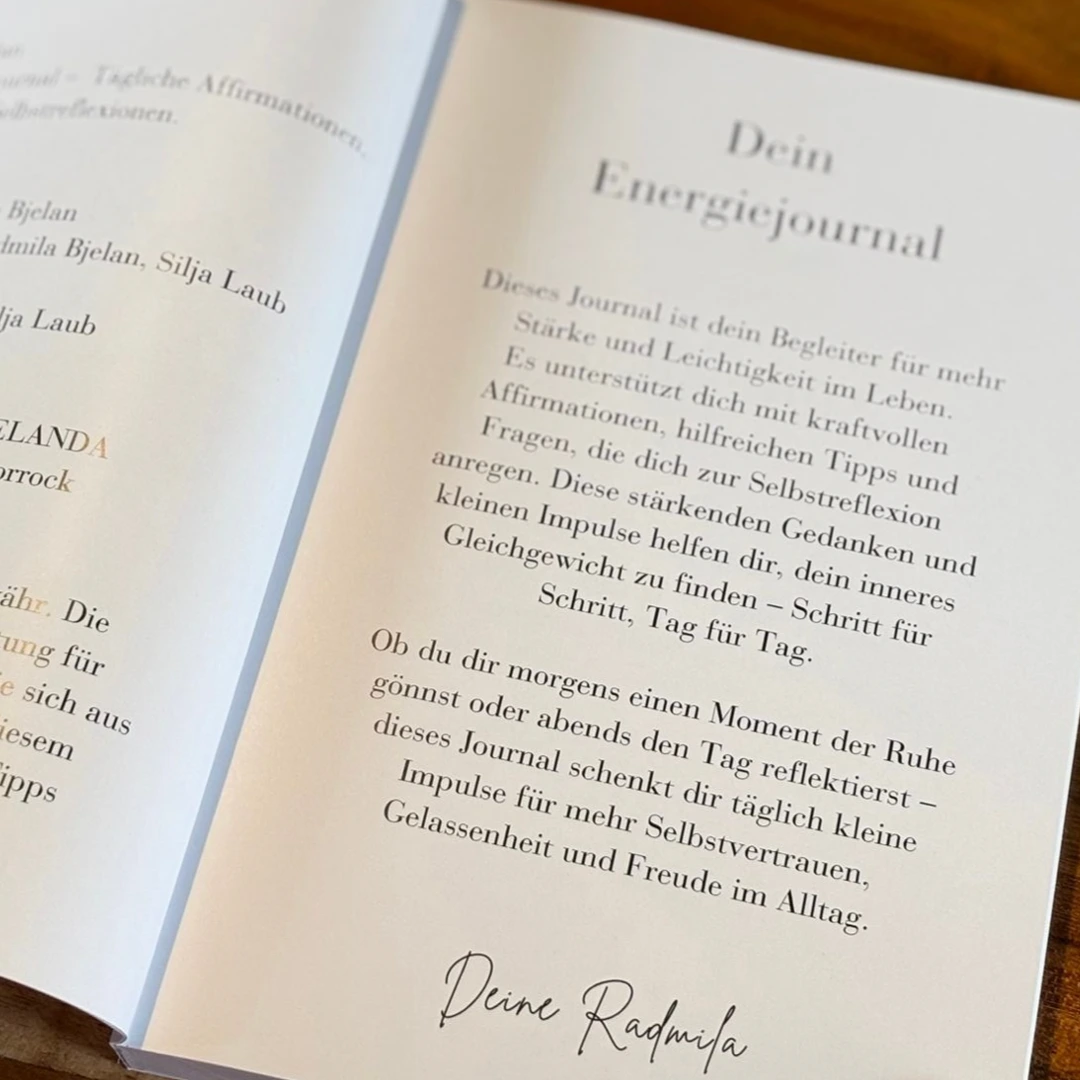 Tägliche Affirmationen,
Selbstreflexionen.
Bjelan
Bjelan, Silja Laub
Laub
Die
für
sich aus
Dein
Energiejournal
Dieses Journal ist dein Begleiter für mehr
Stärke und Leichtigkeit im Leben.
Es unterstützt dich mit kraftvollen
Affirmationen, hilfreichen Tipps und
Fragen, die dich zur Selbstreflexion
anregen. Diese stärkenden Gedanken und
kleinen Impulse helfen dir, dein inneres
Gleichgewicht zu finden – Schritt für
Schritt, Tag für Tag.
Ob du dir morgens einen Moment der Ruhe
gönnst oder abends den Tag reflektierst –
dieses Journal schenkt dir täglich kleine
Impulse für mehr Selbstvertrauen,
Gelassenheit und Freude im Alltag.
Deine Radmila